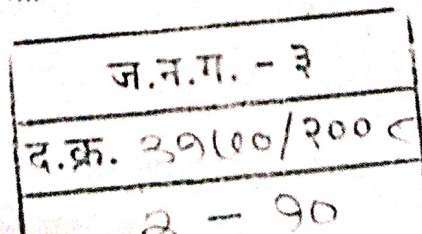 ज.न.ग. - ३
द.क्र. ३१७००/२००८
२ - १०